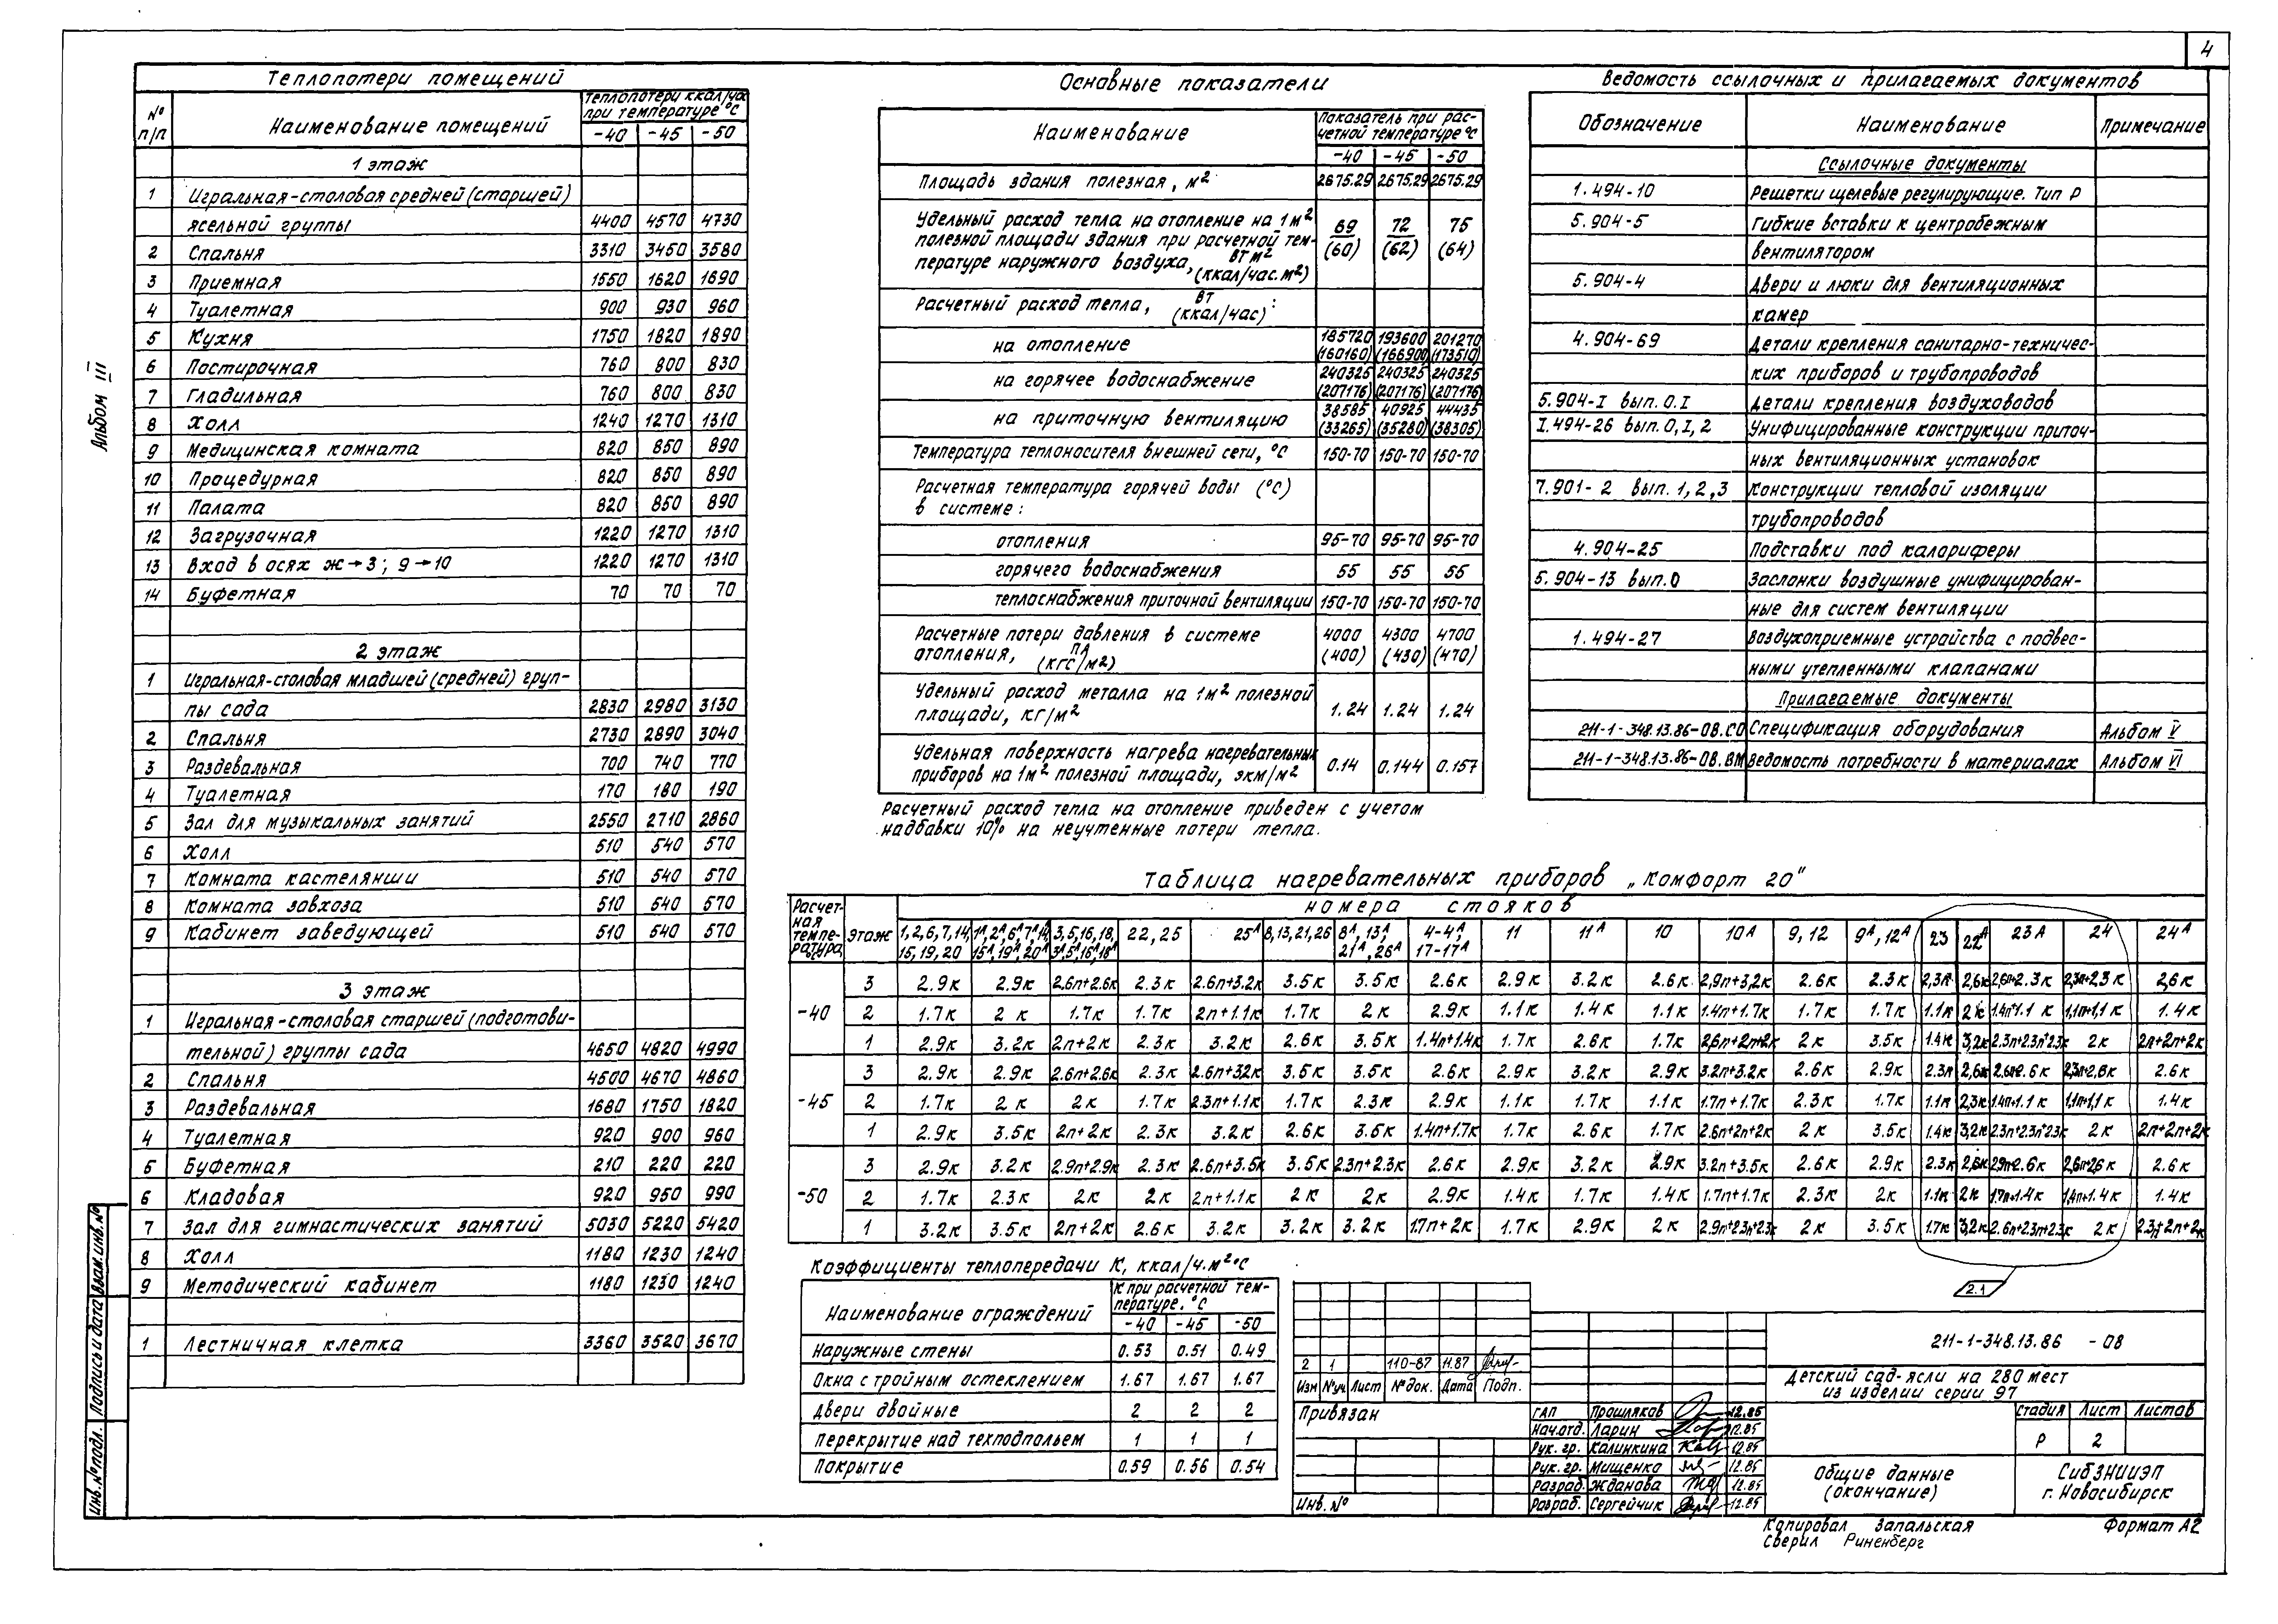 4
Альбом III
Теплопотери помещений
№ п/п | Наименование помещений | Теплопотери ккал/час при температуре °С
-40 | -45 | -50
1 этаж
1 Игральная-столовая средней (старшей)
ясельной группы 4400 4570 4730
2 Спальня 3310 3450 3580
3 Приемная 1550 1620 1690
4 Туалетная 900 930 960
5 Кухня 1750 1820 1890
6 Постирочная 760 800 830
7 Гладильная 760 800 830
8 Холл 1240 1270 1310
9 Медицинская комната 820 850 890
10 Процедурная 820 850 890
11 Палата 820 850 890
12 Загрузочная 1220 1270 1310
13 Вход в осях Ж→З; 9→10 1220 1270 1310
14 Буфетная 70 70 70
2 этаж
1 Игральная-столовая младшей (средней) груп-
пы сада 2830 2980 3130
2 Спальня 2730 2890 3040
3 Раздевальная 700 740 770
4 Туалетная 170 180 190
5 Зал для музыкальных занятий 2550 2710 2860
6 Холл 510 540 570
7 Комната кастелянши 510 540 570
8 Комната завхоза 510 540 570
9 Кабинет заведующей 510 540 570
3 этаж
1 Игральная-столовая старшей (подготови-
тельной) группы сада 4650 4820 4990
2 Спальня 4500 4670 4860
3 Раздевальная 1680 1750 1820
4 Туалетная 920 900 960
5 Буфетная 210 220 220
6 Кладовая 920 950 990
7 Зал для гимнастических занятий 5030 5220 5420
8 Холл 1180 1230 1240
9 Методический кабинет 1180 1230 1240
1 Лестничная клетка 3360 3520 3670
Основные показатели
Наименование | Показатель при рас-
четной температуре °С
-40 | -45 | -50
Площадь здания полезная, м² 2675.29 2675.29 2675.29
Удельный расход тепла на отопление на 1м²
полезной площади здания при расчетной тем-
пературе наружного воздуха, Вт м² (ккал/час.м²) 69 (60) 72 (62) 75 (64)
Расчетный расход тепла, Вт (ккал/час):
на отопление 185720 (160160) 193600 (166900) 201270 (173510)
на горячее водоснабжение 240325 (207176) 240325 (207176) 240325 (207176)
на приточную вентиляцию 38585 (33265) 40925 (35280) 44435 (38305)
Температура теплоносителя внешней сети, °С 150-70 150-70 150-70
Расчетная температура горячей воды (°С)
в системе:
отопления 95-70 95-70 95-70
горячего водоснабжения 55 55 55
теплоснабжения приточной вентиляции 150-70 150-70 150-70
Расчетные потери давления в системе
отопления, ПА (кгс/м²) 4000 (400) 4300 (430) 4700 (470)
Удельный расход металла на 1м² полезной
площади, кг/м² 1.24 1.24 1.24
Удельная поверхность нагрева нагревательных
приборов на 1м² полезной площади, экм/м² 0.14 0.144 0.157
Расчетный расход тепла на отопление приведен с учетом
надбавки 10% на неучтенные потери тепла.
Ведомость ссылочных и прилагаемых документов
Обозначение | Наименование | Примечание
Ссылочные документы
1.494-10 Решетки щелевые регулирующие. Тип Р
5.904-5 Гибкие вставки к центробежным
вентилятором
5.904-4 Двери и люки для вентиляционных
камер
4.904-69 Детали крепления санитарно-техничес-
ких приборов и трубопроводов
5.904-I вып.0.I Детали крепления воздуховодов
I.494-26 вып.0,I,2 Унифицированные конструкции приточ-
ных вентиляционных установок
7.901-2 вып.1,2,3 Конструкции тепловой изоляции
трубопроводов
4.904-25 Подставки под калориферы
5.904-13 вып.0 Заслонки воздушные унифицирован-
ные для систем вентиляции
1.494-27 Воздухоприемные устройства с подвес-
ными утепленными клапанами
Прилагаемые документы
211-1-348.13.86-ОВ.СО Спецификация оборудования Альбом V
211-1-348.13.86-ОВ.ВМ Ведомость потребности в материалах Альбом VI
Таблица нагревательных приборов „Комфорт 20"
Расчетная температура | Этаж | номера стояков
1,2,6,7,14,15,19,20 | 1А,2А,6А,7А,14,15А,19А,20А | 3,5,16,18,3А,5А,16А,18А | 22,25 | 25А | 8,13,21,26 | 8А,13А,21А,26А | 4-4А,17-17А | 11 | 11А | 10 | 10А | 9,12 | 9А,12А | 23 | 22А | 23А | 24 | 24А
-40
3 2.9к 2.9к 2.6п+2.6к 2.3к 2.6п+3.2к 3.5к 3.5к 2.6к 2.9к 3.2к 2.6к 2,9п+3,2к 2.6к 2.3к 2,3к 2,6к 2,6п+2.3к 2,3п+2.3к 2,6к
2 1.7к 2к 1.7к 1.7к 2п+1.1к 1.7к 2к 2.9к 1.1к 1.4к 1.1к 1.4п+1.7к 1.7к 1.7к 1.1к 2к 1.4п+1.1к 1,1п+1,1к 1.4к
1 2.9к 3.2к 2п+2к 2.3к 3.2к 2.6к 3.5к 1.4п+1.4к 1.7к 2.6к 1.7к 2,6п+2п+2к 2к 3.5к 1.4к 3,2к 2.3п+2.3п+2.3к 2к 2п+2п+2к
-45
3 2.9к 2.9к 2.6п+2.6к 2.3к 2.6п+3.2к 3.5к 3.5к 2.6к 2.9к 3.2к 2.9к 3.2п+3.2к 2.6к 2.9к 2.3п 2,6к 2.6п+2.6к 2,3п+2,6к 2.6к
2 1.7к 2к 2к 1.7к 2.3п+1.1к 1.7к 2.3к 2.9к 1.1к 1.7к 1.1к 1.7п+1.7к 2.3к 1.7к 1.1к 2,3к 1.4п+1.1к 1,1п+1,1к 1.4к
1 2.9к 3.5к 2п+2к 2.3к 3.2к 2.6к 3.5к 1.4п+1.7к 1.7к 2.6к 1.7к 2.6п+2п+2к 2к 3.5к 1.4к 3,2к 2.3п+2.3п+2.3к 2к 2п+2п+2к
-50
3 2.9к 3.2к 2.9п+2.9к 2.3к 2.6п+3.5к 3.5к 2.3п+2.3к 2.6к 2.9к 3.2к 2.9к 3.2п+3.5к 2.6к 2.9к 2.3к 2,6к 2.9п+2.6к 2,6п+2,6к 2.6к
2 1.7к 2.3к 2к 2к 2п+1.1к 2к 2к 2.9к 1.4к 1.7к 1.4к 1.7п+1.7к 2.3к 2к 1.1к 2к 1.7п+1.4к 1,4п+1.4к 1.4к
1 3.2к 3.5к 2п+2к 2.6к 3.2к 3.2к 3.2к 1.7п+2к 1.7к 2.9к 2к 2.9п+2.3п+2.3к 2к 3.5к 1.7к 3,2к 2.6п+2.3п+2.3к 2к 2.3п+2п+2к
2.1
Коэффициенты теплопередачи К, ккал/ч.м²°С
Наименование ограждений | К при расчетной тем-
пературе, °С
-40 | -45 | -50
Наружные стены 0.53 0.51 0.49
Окна с тройным остеклением 1.67 1.67 1.67
Двери двойные 2 2 2
Перекрытие над техподпольем 1 1 1
Покрытие 0.59 0.56 0.54
2 1 110-87 11.87
Изм №уч Лист №док. Дата Подп.
Привязан
Инв. №
ГАП Прошляков 12.85
Нач.отд. Ларин 12.85
Рук. гр. Калинкина 12.85
Рук. гр. Мищенко 12.85
Разраб. Жданова 12.85
Разраб. Сергейчик 12.85
211-1-348.13.86 -ОВ
Детский сад-ясли на 280 мест
из изделии серии 97
Стадия Лист Листов
Р 2
Общие данные
(окончание)
СибЗНИИЭП
г. Новосибирск
Копировал Запальская
Сверил Риненберг
Формат А2
Инв.№ подл. Подпись и дата Взам.инв.№